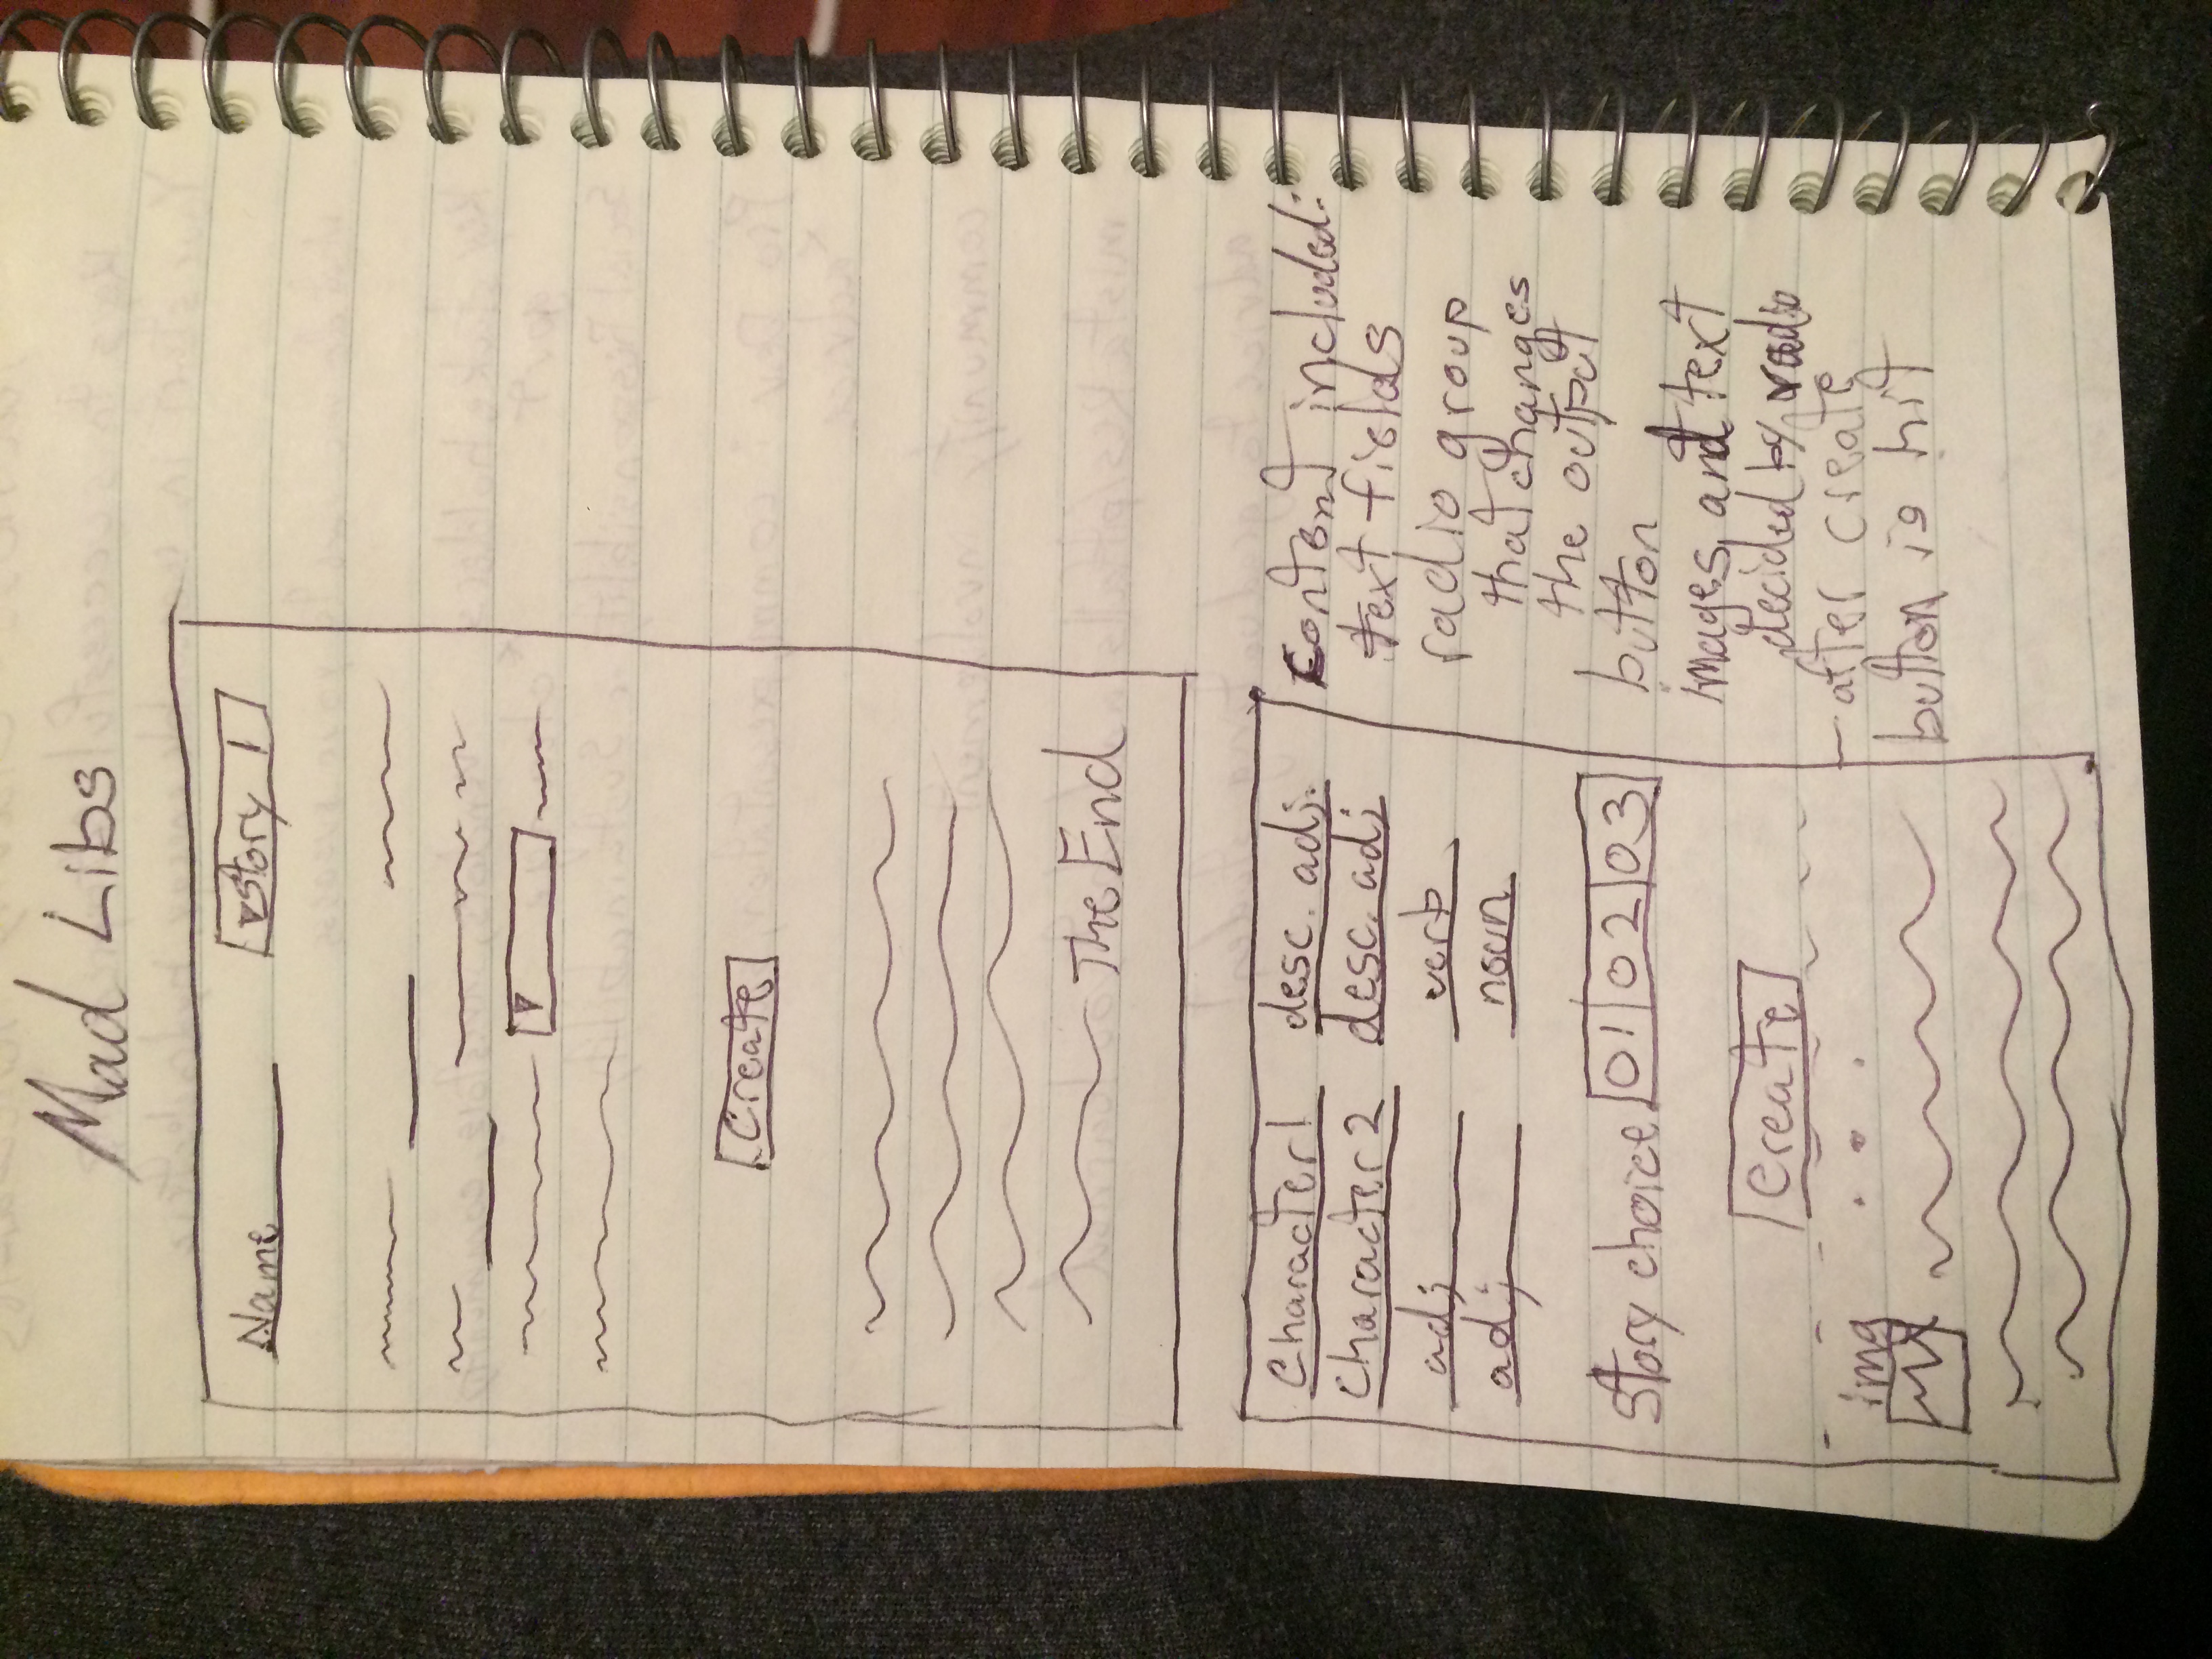 Mad Libs
Name
story 1
Create
The End
Character 1 desc. adj.
Character 2 desc. adj
adj verb
adj noun
Story choice 01 02 03
Create
img
content included:
text fields
radio group
that changes
the output
button
images and text
decided by radio
- after create
button is hit